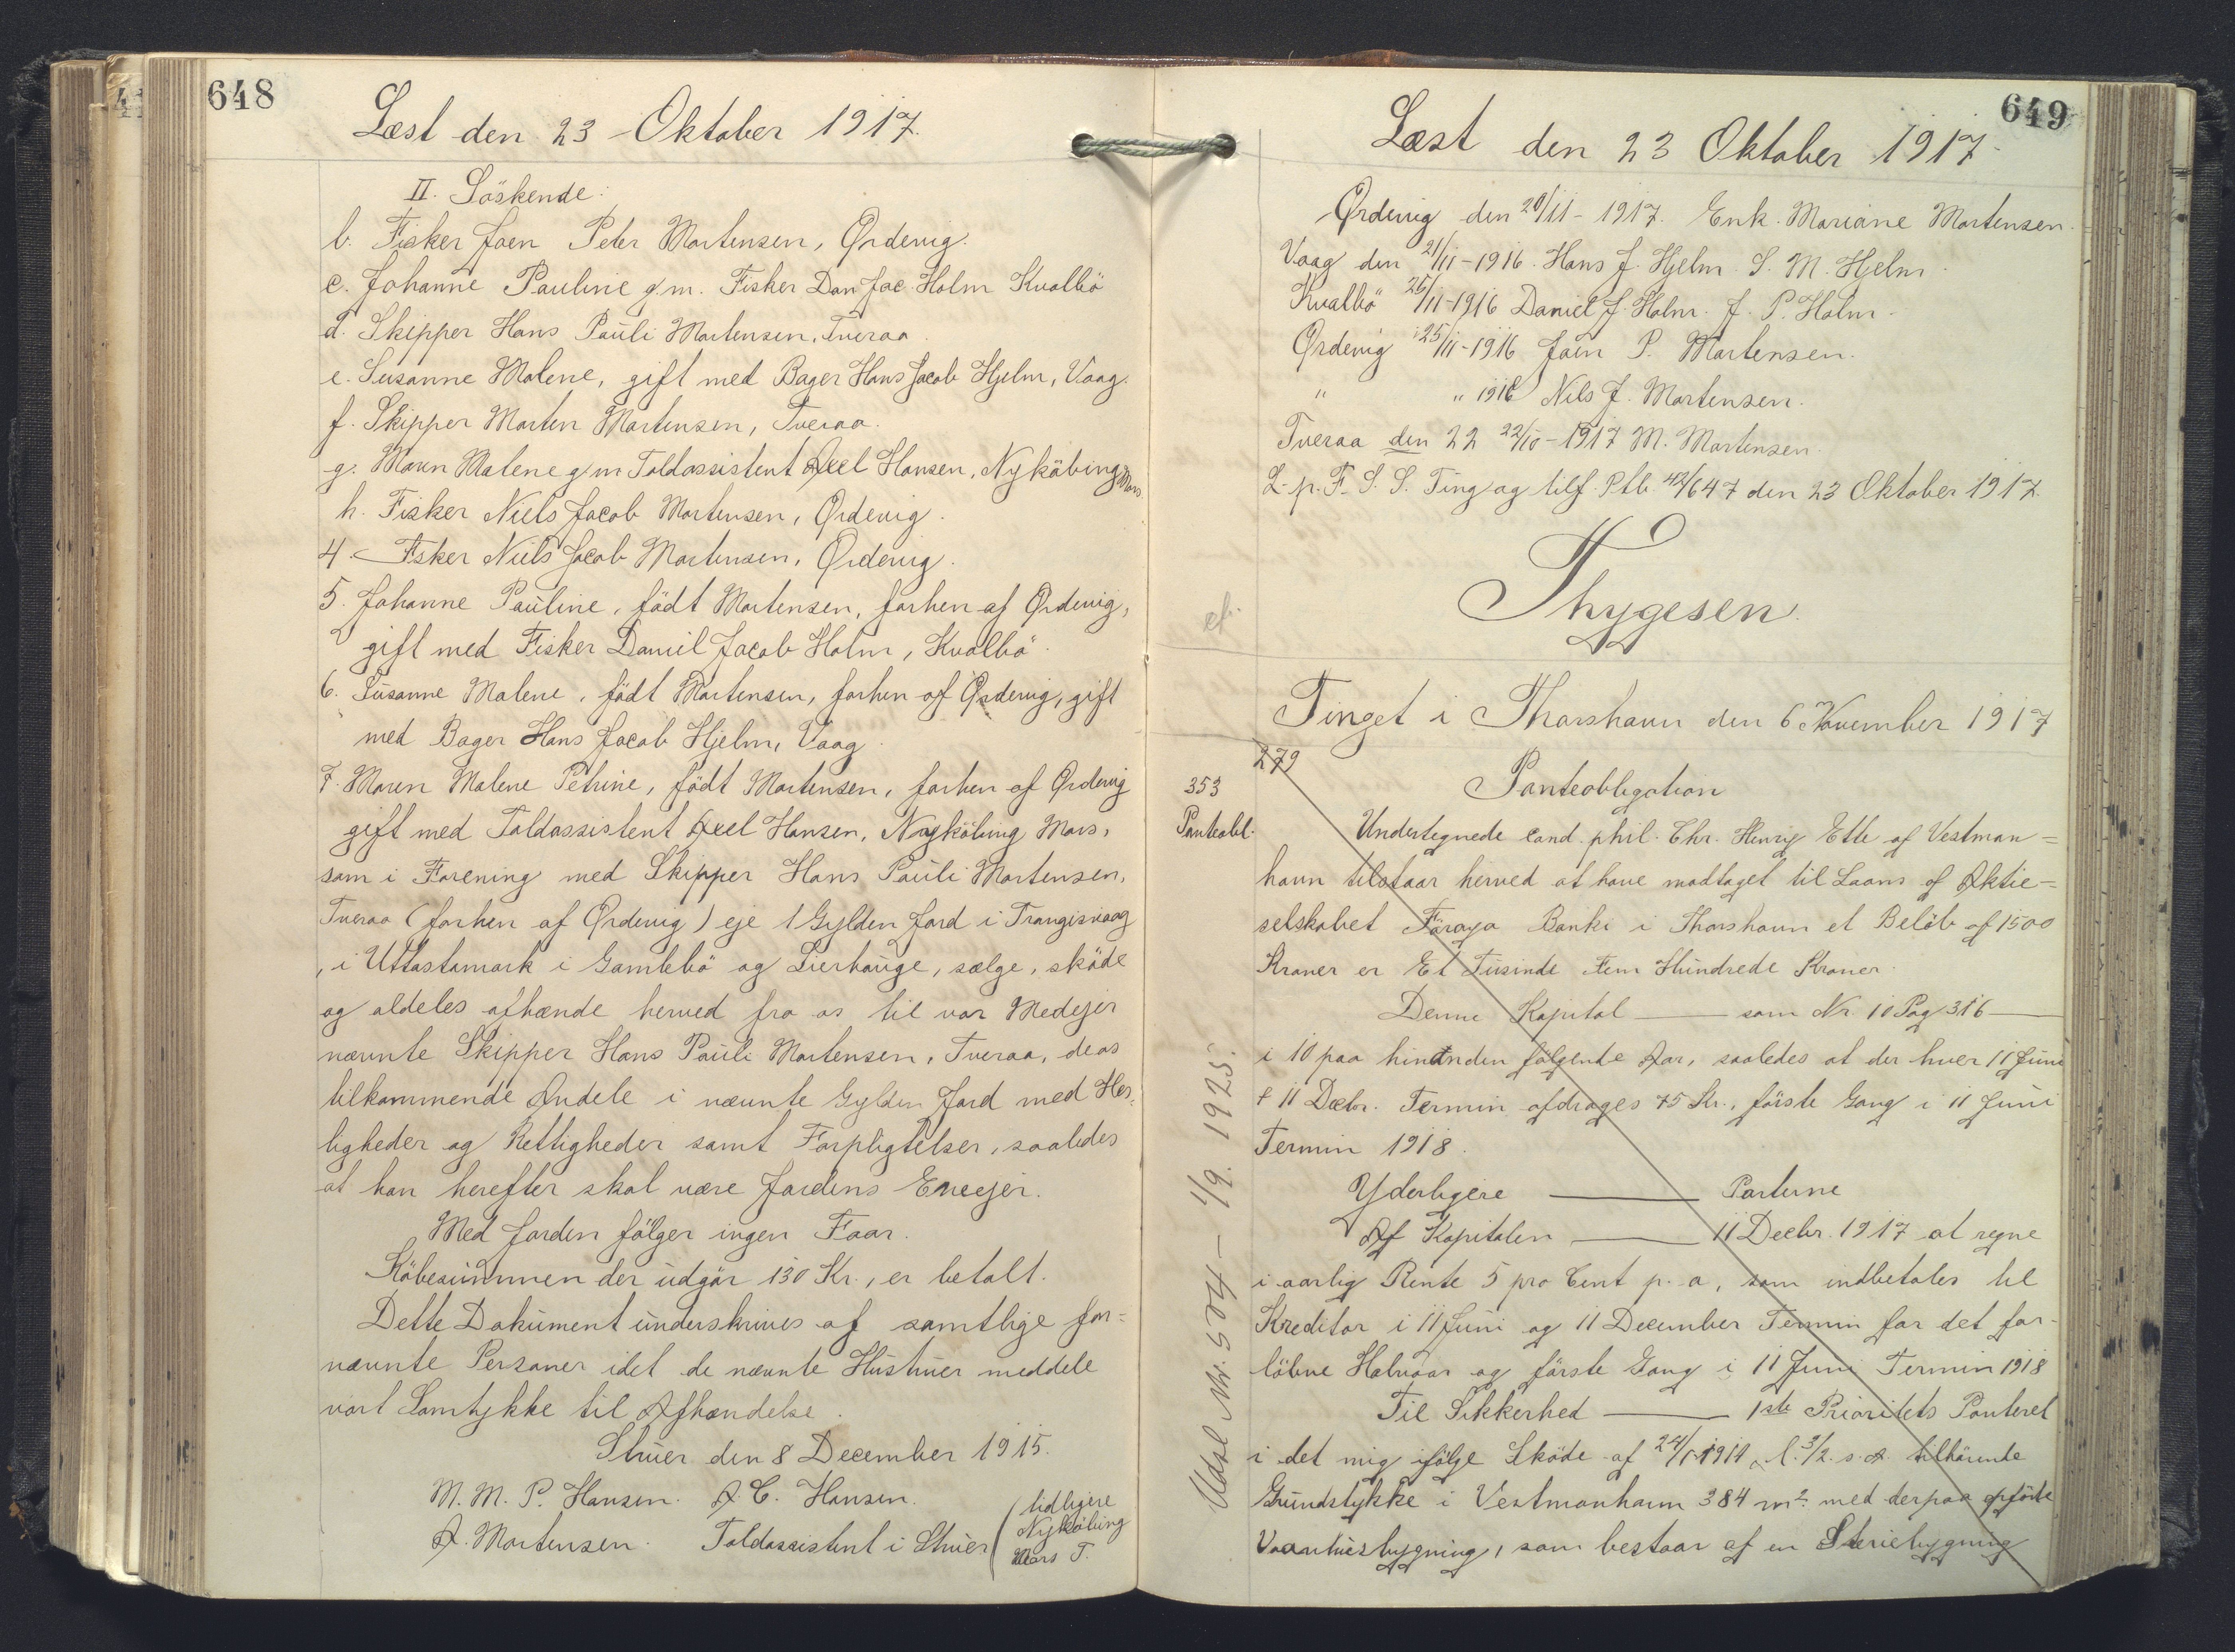 648
Læst den 23 Oktober 1917.
II. Söskende:
b. Fisker Joen Peter Mortensen, Ørdevig.
c. Johanne Pauline g. m. Fisker Dan Jac. Holm Kvalbö
d. Skipper Hans Pauli Mortensen, Tveraa.
e. Susanne Malene, gift med Bager Hans Jacob Hjelm, Vaag.
f. Skipper Morten Mortensen, Tveraa.
g. Maren Malene g m Toldassistent Axel Hansen, Nyköbing Mors.
h. Fisker Niels Jacob Mortensen, Ørdevig.
4 Fisker Niels Jacob Mortensen, Ørdevig.
5. Johanne Pauline, födt Mortensen, forhen af Ørdevig,
gift med Fisker Daniel Jacob Holm, Kvalbö.
6. Susanne Malene, födt Mortensen, forhen af Ørdevig, gift
med Bager Hans Jacob Hjelm, Vaag.
7. Maren Malene Petrine, födt Mortensen, forhen af Ørdevig
gift med Toldassistent Axel Hansen, Nyköbing Mors,
som i Forening med Skipper Hans Pauli Mortensen,
Tveraa (forhen af Ørdevig) eje 1 Gylden Jord i Trangisvaag
, i Uttastamark i Gamlebö og Lierhauge, sælge, sköde
og aldeles afhænde herved fra os til vor Medejer
nævnte Skipper Hans Pauli Mortensen, Tveraa, de os
tilkommende Andele i nævnte Gylden Jord med Her-
ligheder og Rettigheder samt Forpligtelser, saaledes
at han herefter skal være Jordens Eneejer.
Med Jorden fölger ingen Faar.
Köbesummen der udgör 130 Kr., er betalt.
Dette Dokument underskrives af samtlige for-
nævnte Personer idet de nævnte Hustruer meddele
vort Samtykke til Afhændelse.
Struer den 8 December 1915.
M. M. P. Hansen. A. C. Hansen.
A. Mortensen. Toldassistent i Struer (tidligere
Nyköbing
Mors T.
649
Læst den 23 Oktober 1917.
Ørdevig den 20/11-1917. Enk. Mariane Mortensen.
Vaag den 21/11-1916. Hans J. Hjelm. S. M. Hjelm.
Kvalbö 25/11-1916 Daniel J. Holm. J. P. Holm.
Ørdevig 25/11-1916 Joen P. Mortensen.
" " 1916 Nils J. Mortensen.
Tveraa den 22 22/10-1917 M. Mortensen.
L. p. F. S. S. Ting og tilf. Ptb. 42/647 den 23 Oktober 1917.
Thygesen.
cf.
Tinget i Thorshavn den 6 November 1917
279
353
Panteobl.
Panteobligation
Undertegnede cand. phil. Chr. Henrig Ette af Vestman=
havn tilstaar herved at have modtaget til Laans af Aktie=
selskabet Föroya Banki i Thorshavn et Belöb af 1500
Kroner er Et Tusinde Fem Hundrede Kroner.
Denne Kapital — som Nr. 10 Pag 316 —
i 10 paa hinanden fölgende Aar, saaledes at der hver 11 Juni
& 11 Decbr. Termin afdrages 75 Kr., förste Gang i 11 Juni
Termin 1918.
Yderligere — Parterne
Af Kapitalen — 11 Decbr. 1917 at regne
i aarlig Rente 5 pro Cent p. a, som indbetales til
Kreditor i 11 Juni og 11 December Termin for det for-
löbne Halvaar og förste Gang i 11 Juni Termin 1918
Til Sikkerhed — 1ste Prioritets Panteret
i det mig ifölge Sköde af 24/1-1911, l. 3/2. s. A. tilhörende
Grundstykke i Vestmanhavn 384 m2. med derpaa opförte
Vaaninshusbygning, som bestaar af en Stenbygning
Udsl Nr. 504 - 1/9. 1925.